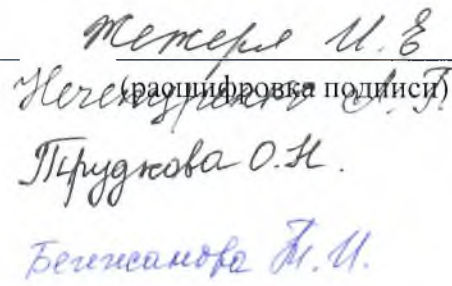 Тетеря И. Е
(расшифровка подписи)
Нечепуренко А. Г.
Трудкова О.Н.
Бегжанова Т. И.